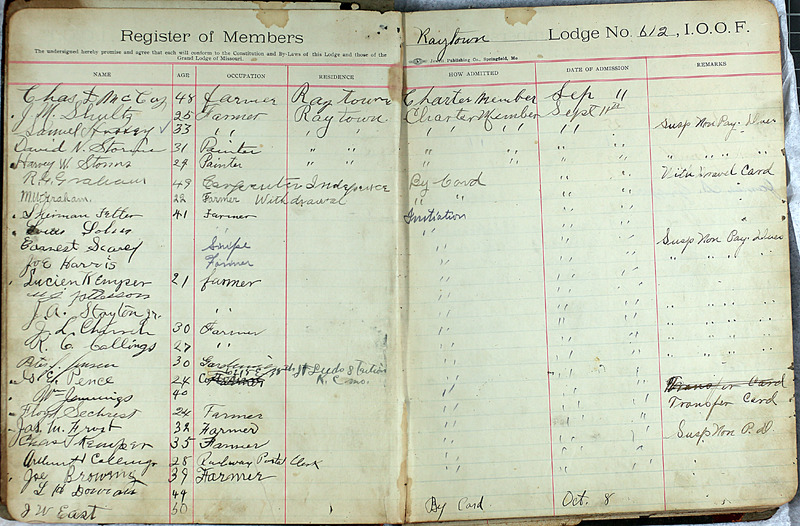 Register of Members
The undersigned hereby promise and agree that each will conform to the Constitution and By-Laws of this Lodge and those of the
Grand Lodge of Missouri.
Raytown Lodge No. 612, I.O.O.F.
Publishing Co., Springfield, Mo
NAME AGE OCCUPATION RESIDENCE HOW ADMITTED DATE OF ADMISSION REMARKS
Chas F McCoy 48 Farmer Raytown Charter Member Sep 11
J. M. Shultz 25 Farmer Raytown Charter Member Sept 11th
Samuel 33 " " " " " " " " Susp Non Pay. Dues
David N. Storms 31 Painter " " " " " " " " " "
Harvey W. Storms 29 Painter " " " " " "
R. G. Graham 49 Carpenter Indepence By Card " " Withdrawal Card
M W Graham. 22 Farmer Withdrawal " " " "
Sherman Fetter 41 Farmer Initiation " "
" " " "
Earnest Searcy " " " " Susp Non Pay. Dues
Joe Harris Farmer " " " " " " " "
Lucien Kemper 21 Farmer " " " "
" " " "
J. A. Stayton Jr. " " " " " " " "
J. L. Church 30 Farmer " " " " " " " "
R. C. Collings 27 " " " " " " " " " "
30 " " " " " " " "
Pence 24 Leeds Station " " " " Transfer Card
K. C. Mo.
Wm Jennings 40 " " " " Transfer Card
Floyd Sechrest 24 Farmer " " " "
Jas. M. Frost 32 Farmer " " " " Susp Non P. D.
Chas Kemper 35 Farmer " " " "
Arthur H Collings 28 Railway Postal Clerk " " " "
Joe Browning 39 Farmer " " " "
49 " " " "
J W East 50 By Card Oct. 8